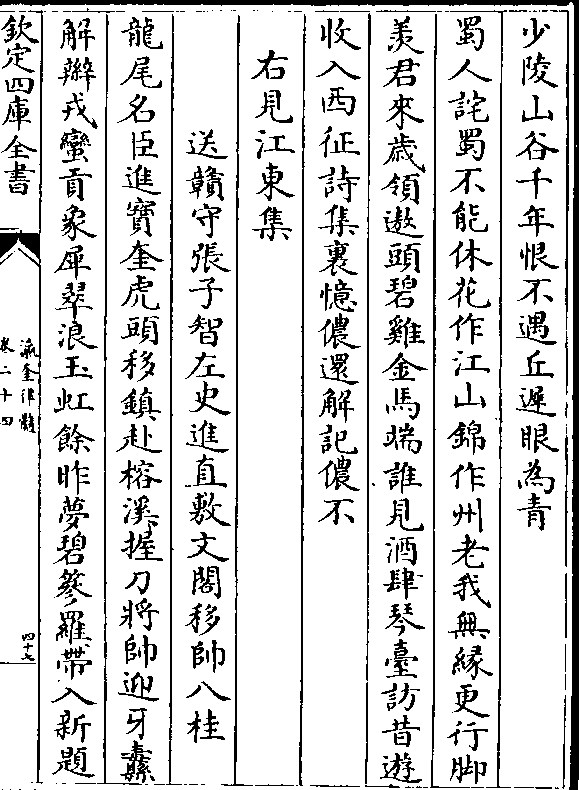 少陵山谷千年恨不遇丘遲眼為青
蜀人詫蜀不能休花作江山錦作州老我無縁更行脚
羡君來歳領遨頭碧雞金馬端誰見酒肆琴臺訪昔遊
收入西征詩集裏憶儂還解記儂不
右見江東集
送贛守張子智左史進直敷文閣移帥八桂
龍尾名臣進寶奎虎頭移鎮赴榕溪握刀將帥迎牙纛
解辮戎蠻貢象犀翠浪玉虹餘昨夢碧簪羅帶入新題
欽定四庫全書
瀛奎律髓
卷二十四
四十七